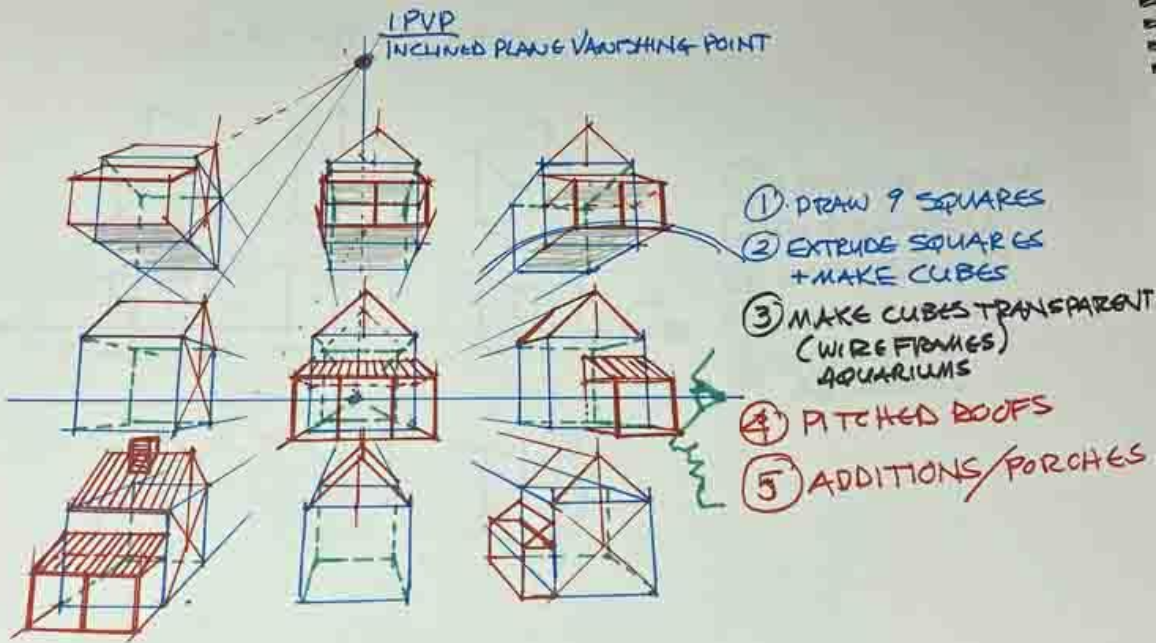 IPVP
INCLINED PLANE VANISHING POINT
① DRAW 9 SQUARES
② EXTRUDE SQUARES
+ MAKE CUBES
③ MAKE CUBES TRANSPARENT
(WIREFRAMES)
AQUARIUMS
④ PITCHED ROOFS
⑤ ADDITIONS/PORCHES